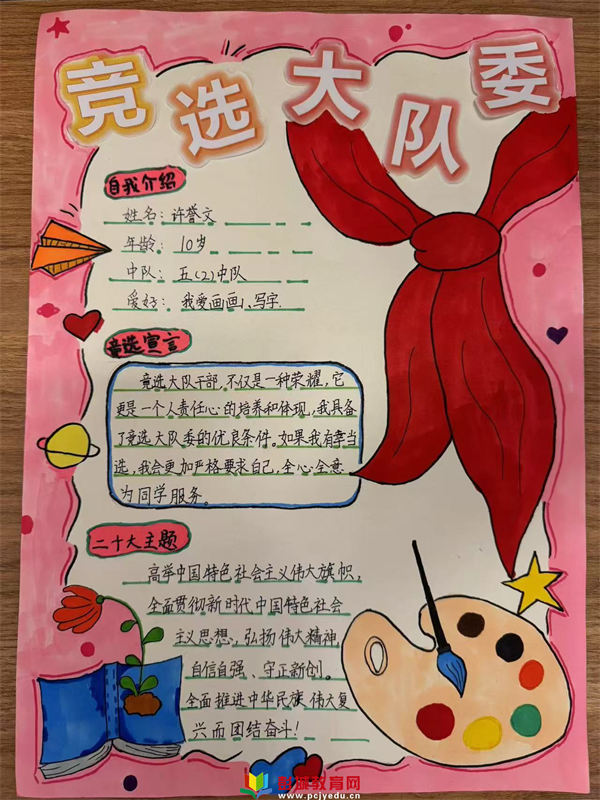 竞选大队委
自我介绍
姓名：许誉文
年龄：10岁
中队：五(2)中队
爱好：我爱画画、写字.
竞选宣言
竞选大队干部,不仅是一种荣耀,它
更是一个人责任心的培养和体现,我具备
了竞选大队委的优良条件。如果我有幸当
选,我会更加严格要求自己,全心全意
为同学服务。
二十大主题
高举中国特色社会主义伟大旗帜,
全面贯彻新时代中国特色社会
主义思想,弘扬伟大精神,
自信自强、守正新创。
全面推进中华民族伟大复
兴而团结奋斗!
教育网
www.pcjyedu.cn